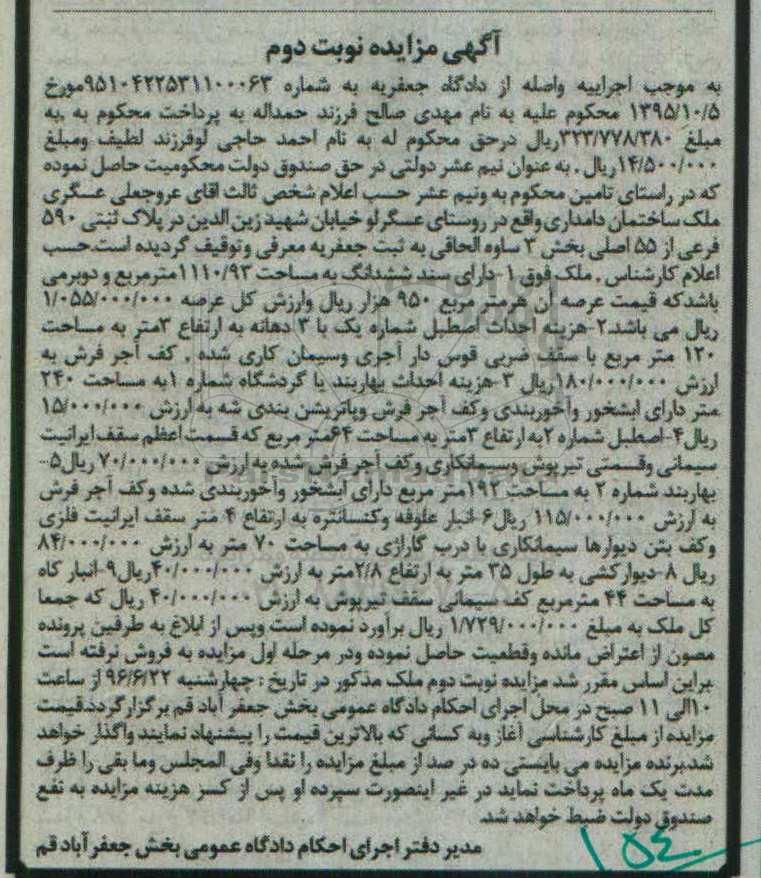 آگهی مزایده نوبت دوم
به موجب اجراییه واصله از دادگاه جعفریه به شماره ۹۵۱۰۴۲۲۵۳۱۱۰۰۰۶۳مورخ
۱۳۹۵/۱۰/۵ محکوم علیه به نام مهدی صالح فرزند حمداله به پرداخت محکوم به .به
مبلغ ۳۲۳/۷۷۸/۳۸۰ریال درحق محکوم له به نام احمد حاجی لوفرزند لطیف ومبلغ
۱۴/۵۰۰/۰۰۰ریال . به عنوان نیم عشر دولتی در حق صندوق دولت محکومیت حاصل نموده
که در راستای تامین محکوم به ونیم عشر حسب اعلام شخص ثالث اقای عروجعلی عسگری
ملک ساختمان دامداری واقع در روستای عسگرلو خیابان شهید زین الدین در پلاک ثبتی ۵۹۰
فرعی از ۵۵ اصلی بخش ۳ ساوه الحاقی به ثبت جعفریه معرفی وتوقیف گردیده است.حسب
اعلام کارشناس . ملک فوق ۱-دارای سند ششدانگ به مساحت ۱۱۱۰/۹۳مترمربع و دوبرمی
باشدکه قیمت عرصه آن هرمتر مربع ۹۵۰ هزار ریال وارزش کل عرصه ۱/۰۵۵/۰۰۰/۰۰۰
ریال می باشد.۲-هزینه احداث اصطبل شماره یک با ۳ دهانه به ارتفاع ۳متر به مساحت
۱۲۰ متر مربع با سقف ضربی قوس دار آجری وسیمان کاری شده . کف آجر فرش به
ارزش ۱۸۰/۰۰۰/۰۰۰ریال ۳-هزینه احداث بهاربند یا گردشگاه شماره ۱به مساحت ۲۴۰
متر دارای ابشخور وآخوربندی وکف آجر فرش وپاتریشن بندی شه به ارزش ۱۵/۰۰۰/۰۰۰
ریال۴-اصطبل شماره ۲به ارتفاع ۳متر به مساحت ۶۴متر مربع که قسمت اعظم سقف ایرانیت
سیمانی وقسمتی تیرپوش وسیمانکاری وکف آجر فرش شده به ارزش ۷۰/۰۰۰/۰۰۰ ریال۵-
بهاربند شماره ۲ به مساحت ۱۹۲متر مربع دارای ابشخور وآخوربندی شده وکف آجر فرش
به ارزش ۱۱۵/۰۰۰/۰۰۰ ریال۶-انبار علوفه وکنسانتره به ارتفاع ۴ متر سقف ایرانیت فلزی
وکف بتن دیوارها سیمانکاری با درب گاراژی به مساحت ۷۰ متر به ارزش ۸۴/۰۰۰/۰۰۰
ریال ۸-دیوارکشی به طول ۳۵ متر به ارتفاع ۲/۸متر به ارزش ۴۰/۰۰۰/۰۰۰ریال۹-انبار کاه
به مساحت ۴۴ مترمربع کف سیمانی سقف تیرپوش به ارزش ۴۰/۰۰۰/۰۰۰ ریال که جمعا
کل ملک به مبلغ ۱/۷۲۹/۰۰۰/۰۰۰ ریال برآورد نموده است وپس از ابلاغ به طرفین پرونده
مصون از اعتراض مانده وقطعیت حاصل نموده ودر مرحله اول مزایده به فروش نرفته است
.براین اساس مقرر شد مزایده نوبت دوم ملک مذکور در تاریخ : چهارشنبه ۹۶/۶/۲۲ از ساعت
۱۰الی ۱۱ صبح در محل اجرای احکام دادگاه عمومی بخش جعفر آباد قم برگزارگردد.قیمت
مزایده از مبلغ کارشناسی آغاز وبه کسانی که بالاترین قیمت را پیشنهاد نمایند واگذار خواهد
شد.برنده مزایده می بایستی ده در صد از مبلغ مزایده را نقدا وفی المجلس وما بقی را ظرف
مدت یک ماه پرداخت نماید در غیر اینصورت سپرده او پس از کسر هزینه مزایده به نفع
صندوق دولت ضبط خواهد شد.
مدیر دفتر اجرای احکام دادگاه عمومی بخش جعفر آباد قم